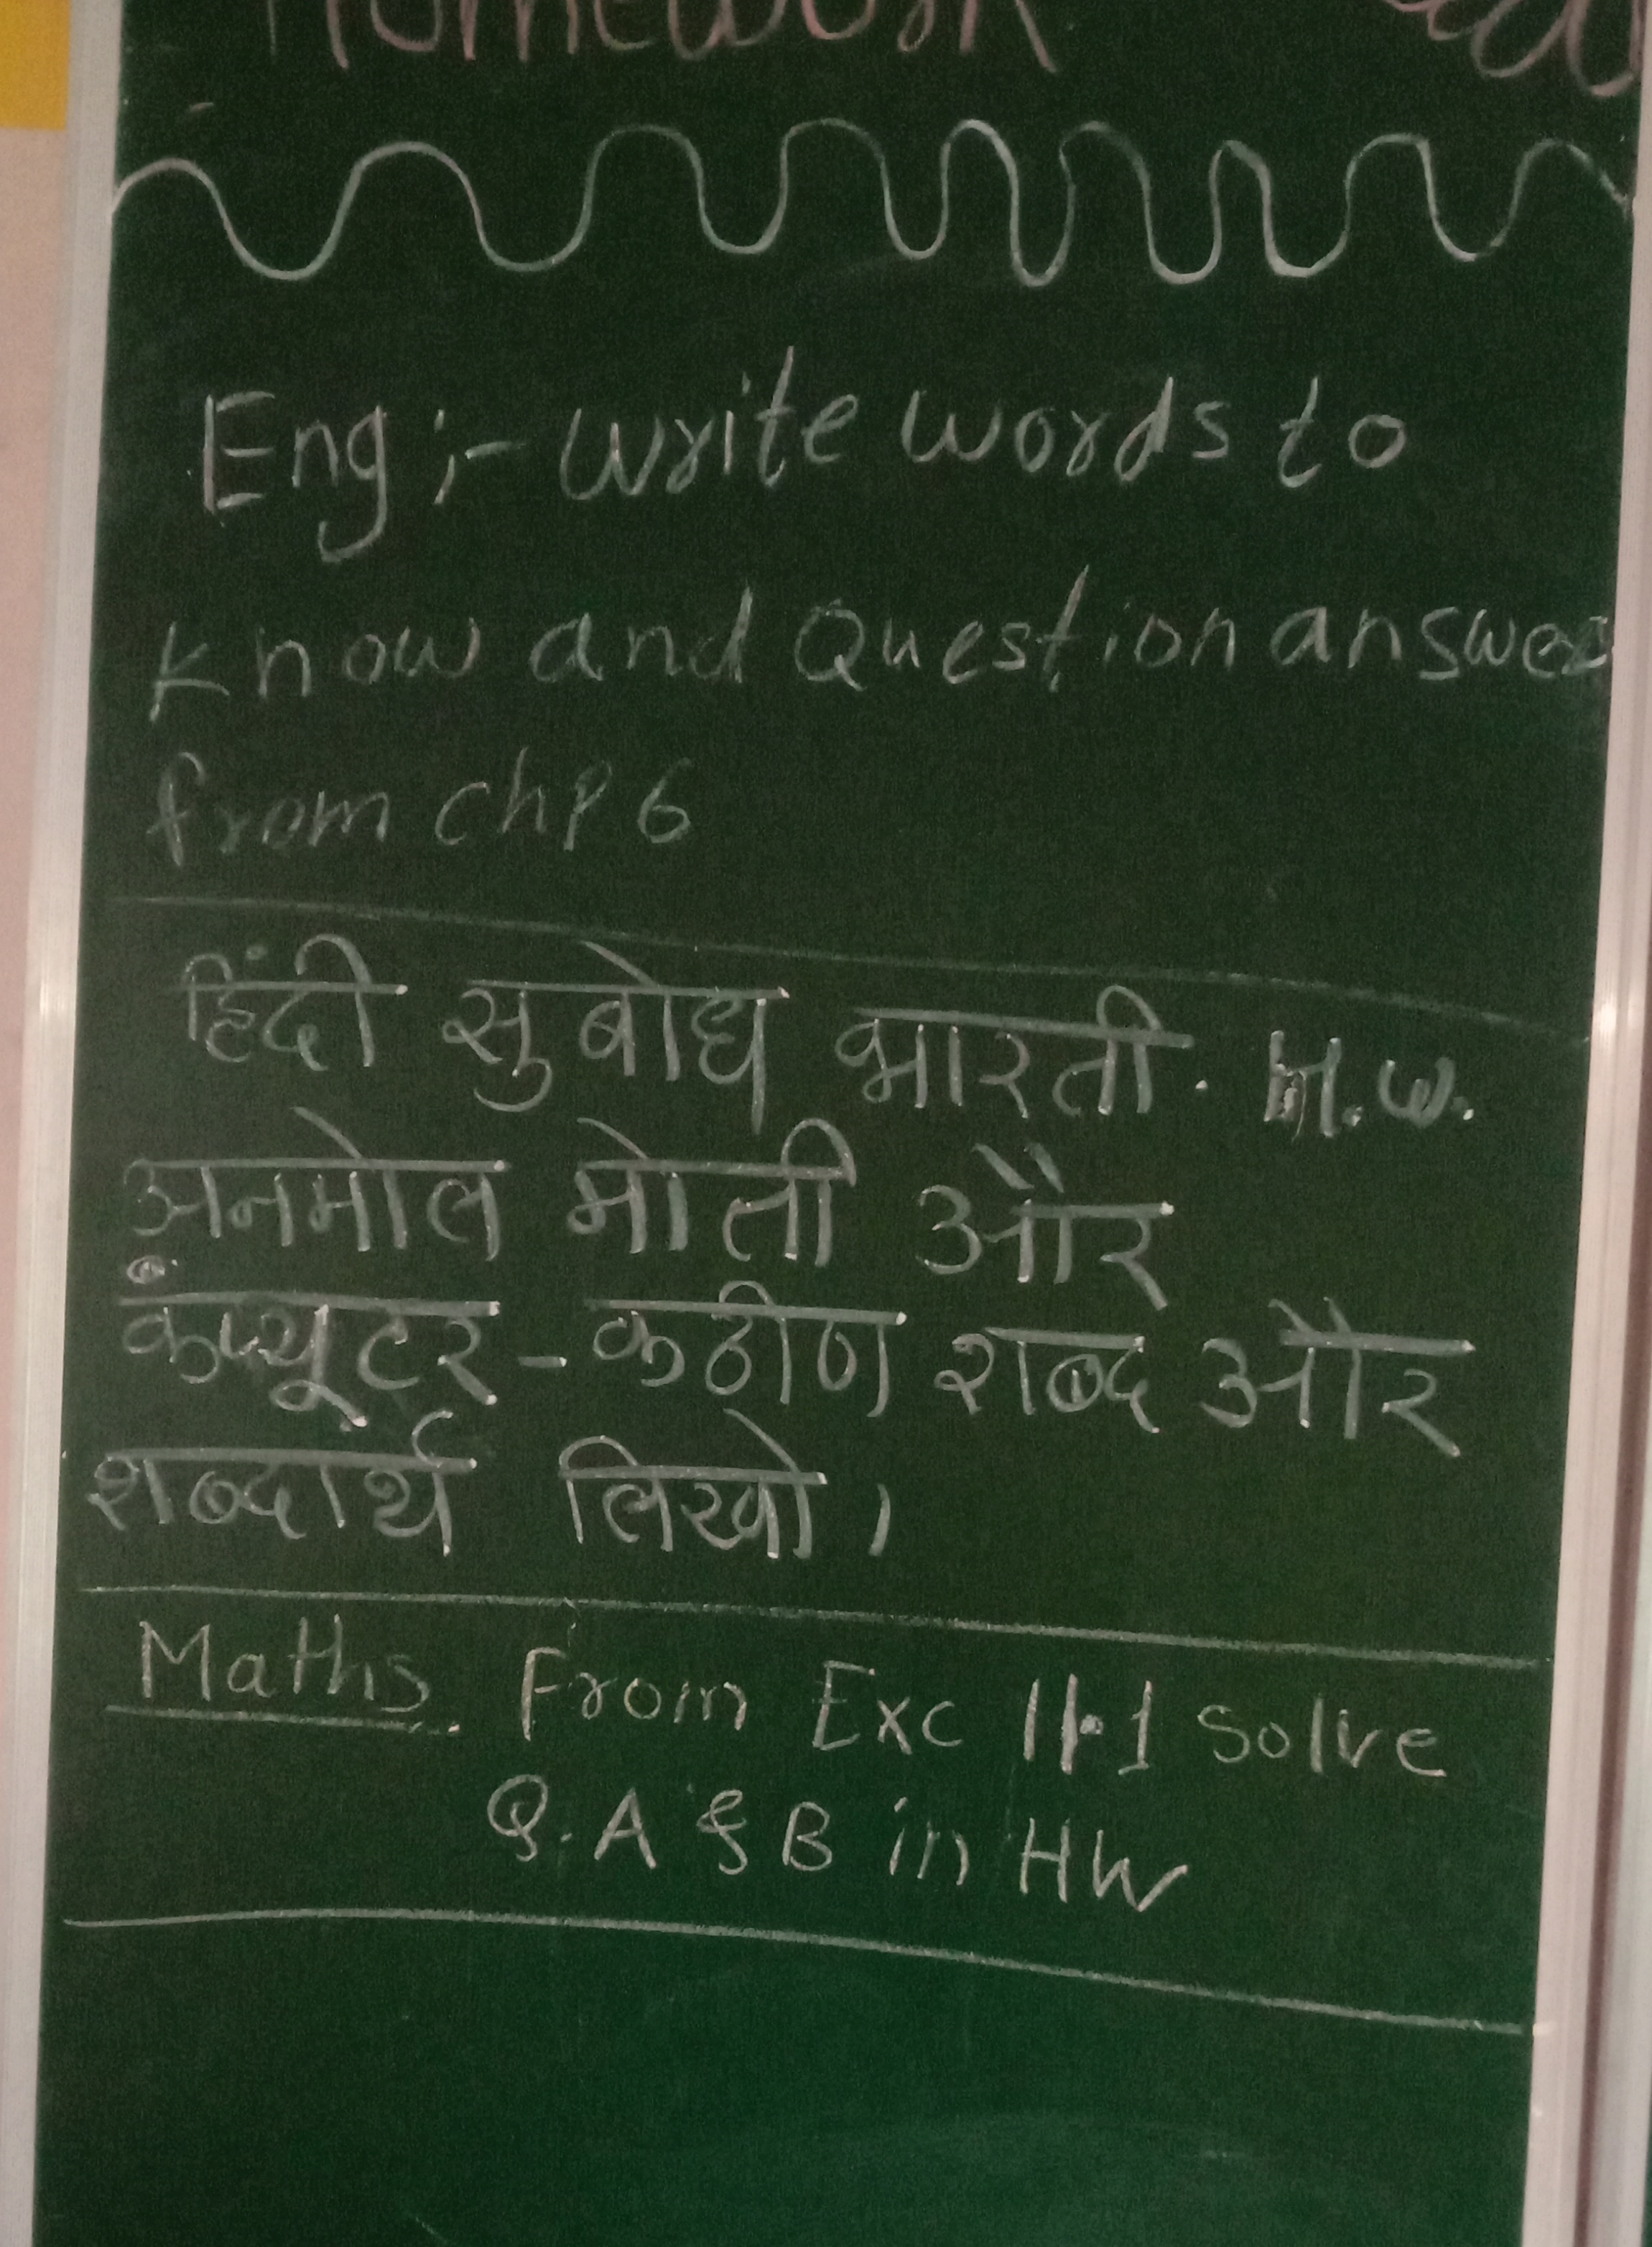 Homework
Eng :- write words to
know and Question answer
from chp 6
हिंदी सुबोध भारती. H.W.
अनमोल मोती और
कंप्यूटर - कठीण शब्द और
शब्दार्थ लिखो।
Maths From Exc 11.1 Solve
Q. A & B in HW